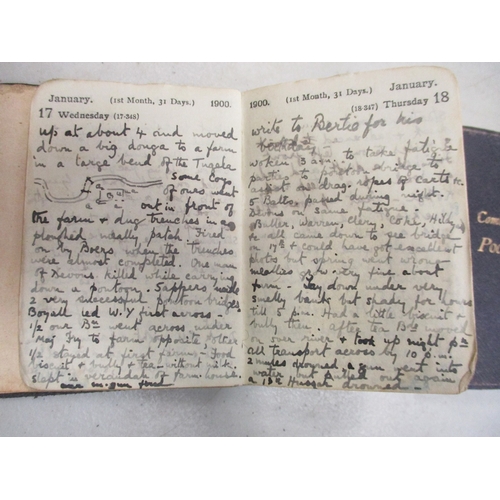 January. (1st Month, 31 Days.) 1900.
17 Wednesday (17-348)
up at about 4 and moved
down a big donga to a farm
in a large bend of the Tugela
some Coys
of ours went
out in front of
the farm & dug trenches in a
ploughed mealy patch. Fired
on by Boers when the trenches
were almost completed. One man
of Devons killed while carrying
down a pontoon. Sappers made
2 very successful pontoon bridges
led W.Y first across -
1/2 our Bn went across under
Maj Fry to farm opposite
1/2 stayed at first farm - Good
biscuit & bully & tea - without
slept in verandah of farm house.
one m. gun
1900. (1st Month, 31 Days.) January.
(18-347) Thursday 18
write to Bertie for his
birthday
woken 3 a.m. to take fatigue
parties to bridge to
assist on drag ropes of carts &c.
5 passed during night.
Devons on same fatigue.
Buller, Warren, Clery, Coke, Hildyard
& all came down to see bridge
on 17th & could have got excellent
shots but spring went wrong
mealies very fine about
farm - Lay down under very
smelly bank but shady for hours
till 5 p.m. Had a little biscuit &
bully then. after tea Bn moved
on over river & took up night pn
all transport across by 10 p.m.
2 mules drowned. a gun went into
water but pulled out again
a 13th Hussar drowned -